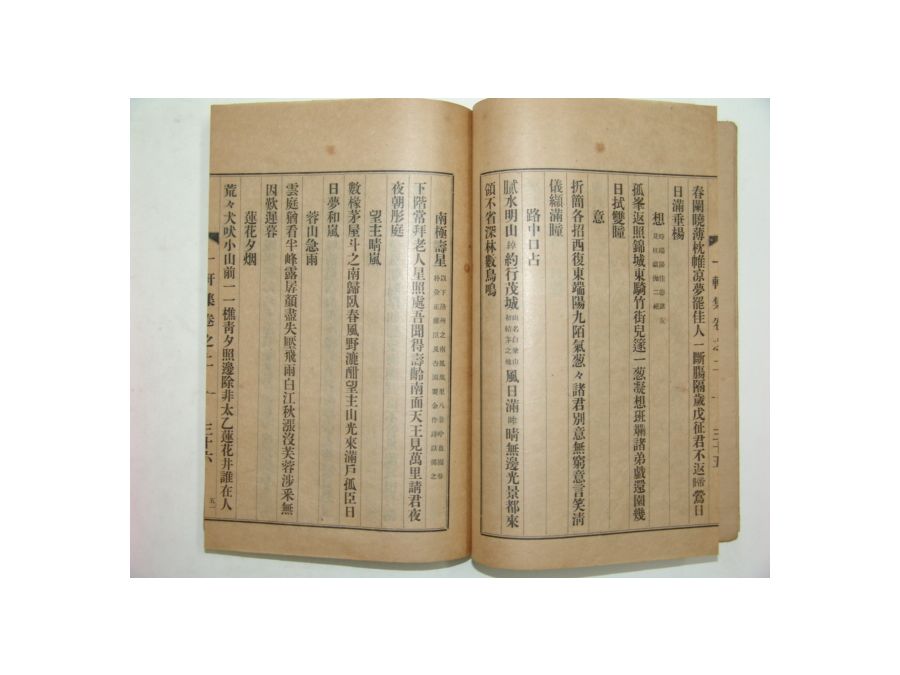 春闌曉薄枕帷凉夢罷佳人一斷腸隔歲戍征君不返啼鶯日
日滿垂楊
想
孤峯返照錦城東騎竹街兒篴一葱凝想班斕諸弟戱還園幾
日拭雙瞳
意
折簡各招西復東端陽九陌氣葱々諸君別意無窮意言笑淸
儀纈滿瞳
路中口占
膩水明山綽約行茂城 風日滿 晴無邊光景都來
領不省深林數鳥鳴
南極壽星
下階常拜老人星照處吾聞得壽齡南面天王見萬里請君夜
夜朝彤庭
望主晴嵐
數椽茅屋斗之南歸臥春風野漉酣望主山光來滿戶孤臣日
日夢和嵐
蓉山急雨
雲庭猶看半峰露孱顏盡失壓飛雨白江秋漲沒芙蓉涉釆無
因歎遲暮
蓮花夕烟
荒々犬吠小山前一一樵靑夕照邊除非太乙蓮花井誰在人
一軒集 卷之二 三十六